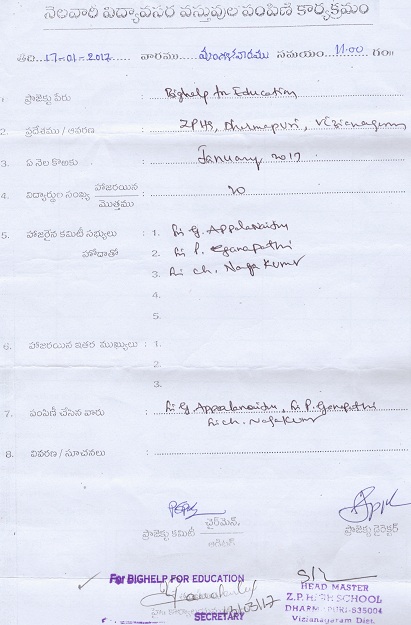 నెలవారి విద్యావసర వస్తువుల పంపిణి కార్యక్రమం
తేది 17-01-2017 వారము మంగళవారము సమయం 11.00 గం॥
1. ప్రాజెక్టు పేరు : Bighelp for Education
2. ప్రదేశము / ఆవరణ : ZPHS, Dharmapuri, Vizianagaram
3. ఏ నెల కొఱకు : January 2017
4. విద్యార్థుల సంఖ్య హాజరయిన మొత్తము : 20
5. హాజరైన కమిటీ సభ్యులు : 1. Sri G. Appalanaidu
హోదాతో 2. Sri P. Ganapathi
3. Sri Ch. Naga Kumar
4.
5.
6. హాజరయిన ఇతర ముఖ్యులు : 1.
2.
3.
7. పంపిణి చేసిన వారు : Sri G. Appalanaidu, Sri P. Ganapathi
Sri Ch. Naga Kumar
8. వివరణ / సూచనలు :
ప్రాజెక్టు కమిటీ ఛైర్‌మెన్ ప్రాజెక్టు డైరెక్టర్
ఆడిటర్
For BIGHELP FOR EDUCATION
HEAD MASTER
Z.P. HIGH SCHOOL
DHARMAPURI-535004
Vizianagaram Dist.
SECRETARY